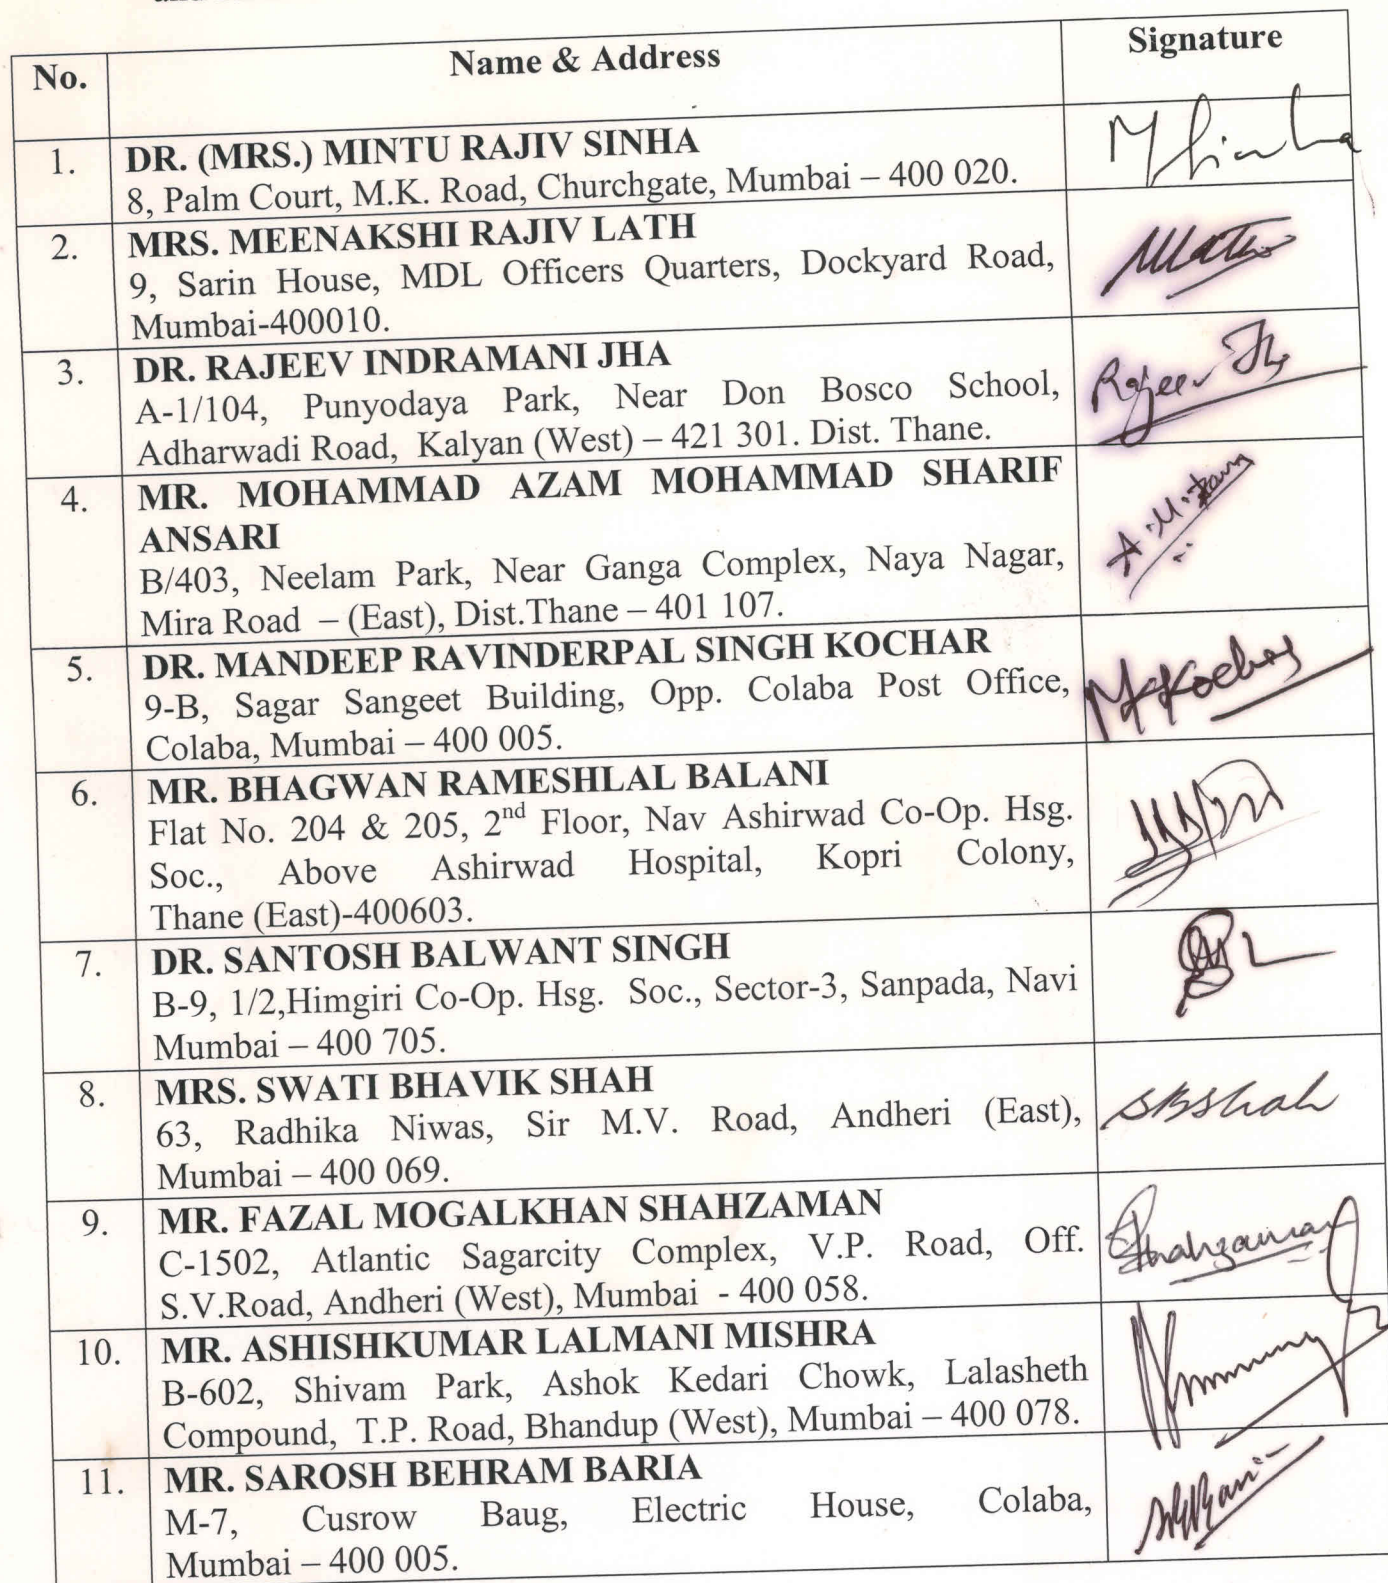 No. Name & Address Signature
1. DR. (MRS.) MINTU RAJIV SINHA
8, Palm Court, M.K. Road, Churchgate, Mumbai – 400 020.
M Sinha
2. MRS. MEENAKSHI RAJIV LATH
9, Sarin House, MDL Officers Quarters, Dockyard Road,
Mumbai-400010.
3. DR. RAJEEV INDRAMANI JHA
A-1/104, Punyodaya Park, Near Don Bosco School,
Adharwadi Road, Kalyan (West) – 421 301. Dist. Thane.
Rajeev Jha
4. MR. MOHAMMAD AZAM MOHAMMAD SHARIF
ANSARI
B/403, Neelam Park, Near Ganga Complex, Naya Nagar,
Mira Road – (East), Dist.Thane – 401 107.
5. DR. MANDEEP RAVINDERPAL SINGH KOCHAR
9-B, Sagar Sangeet Building, Opp. Colaba Post Office,
Colaba, Mumbai – 400 005.
MKKochar
6. MR. BHAGWAN RAMESHLAL BALANI
Flat No. 204 & 205, 2nd Floor, Nav Ashirwad Co-Op. Hsg.
Soc., Above Ashirwad Hospital, Kopri Colony,
Thane (East)-400603.
7. DR. SANTOSH BALWANT SINGH
B-9, 1/2,Himgiri Co-Op. Hsg. Soc., Sector-3, Sanpada, Navi
Mumbai – 400 705.
8. MRS. SWATI BHAVIK SHAH
63, Radhika Niwas, Sir M.V. Road, Andheri (East),
Mumbai – 400 069.
SBShah
9. MR. FAZAL MOGALKHAN SHAHZAMAN
C-1502, Atlantic Sagarcity Complex, V.P. Road, Off.
S.V.Road, Andheri (West), Mumbai - 400 058.
Shahzaman
10. MR. ASHISHKUMAR LALMANI MISHRA
B-602, Shivam Park, Ashok Kedari Chowk, Lalasheth
Compound, T.P. Road, Bhandup (West), Mumbai – 400 078.
11. MR. SAROSH BEHRAM BARIA
M-7, Cusrow Baug, Electric House, Colaba,
Mumbai – 400 005.